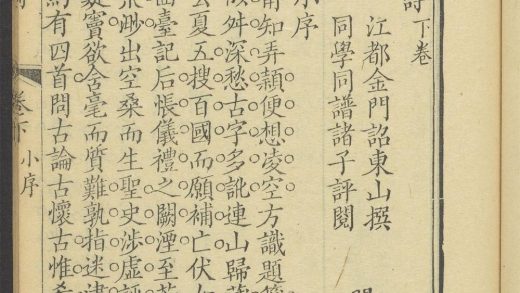 詩下卷
江都金門詔東山撰
同學同譜諸子評閱
小序
知弄穎便想凌空方識題
舛深愁古字多訛連山歸
夏五搜百國而願補亡伏
臺記后悵儀禮之闕湮至
渺出空桑而生聖史涉虛
竇欲含毫而質難孰指迷津
約有四首問古論古懷古惟希
卷下 小序